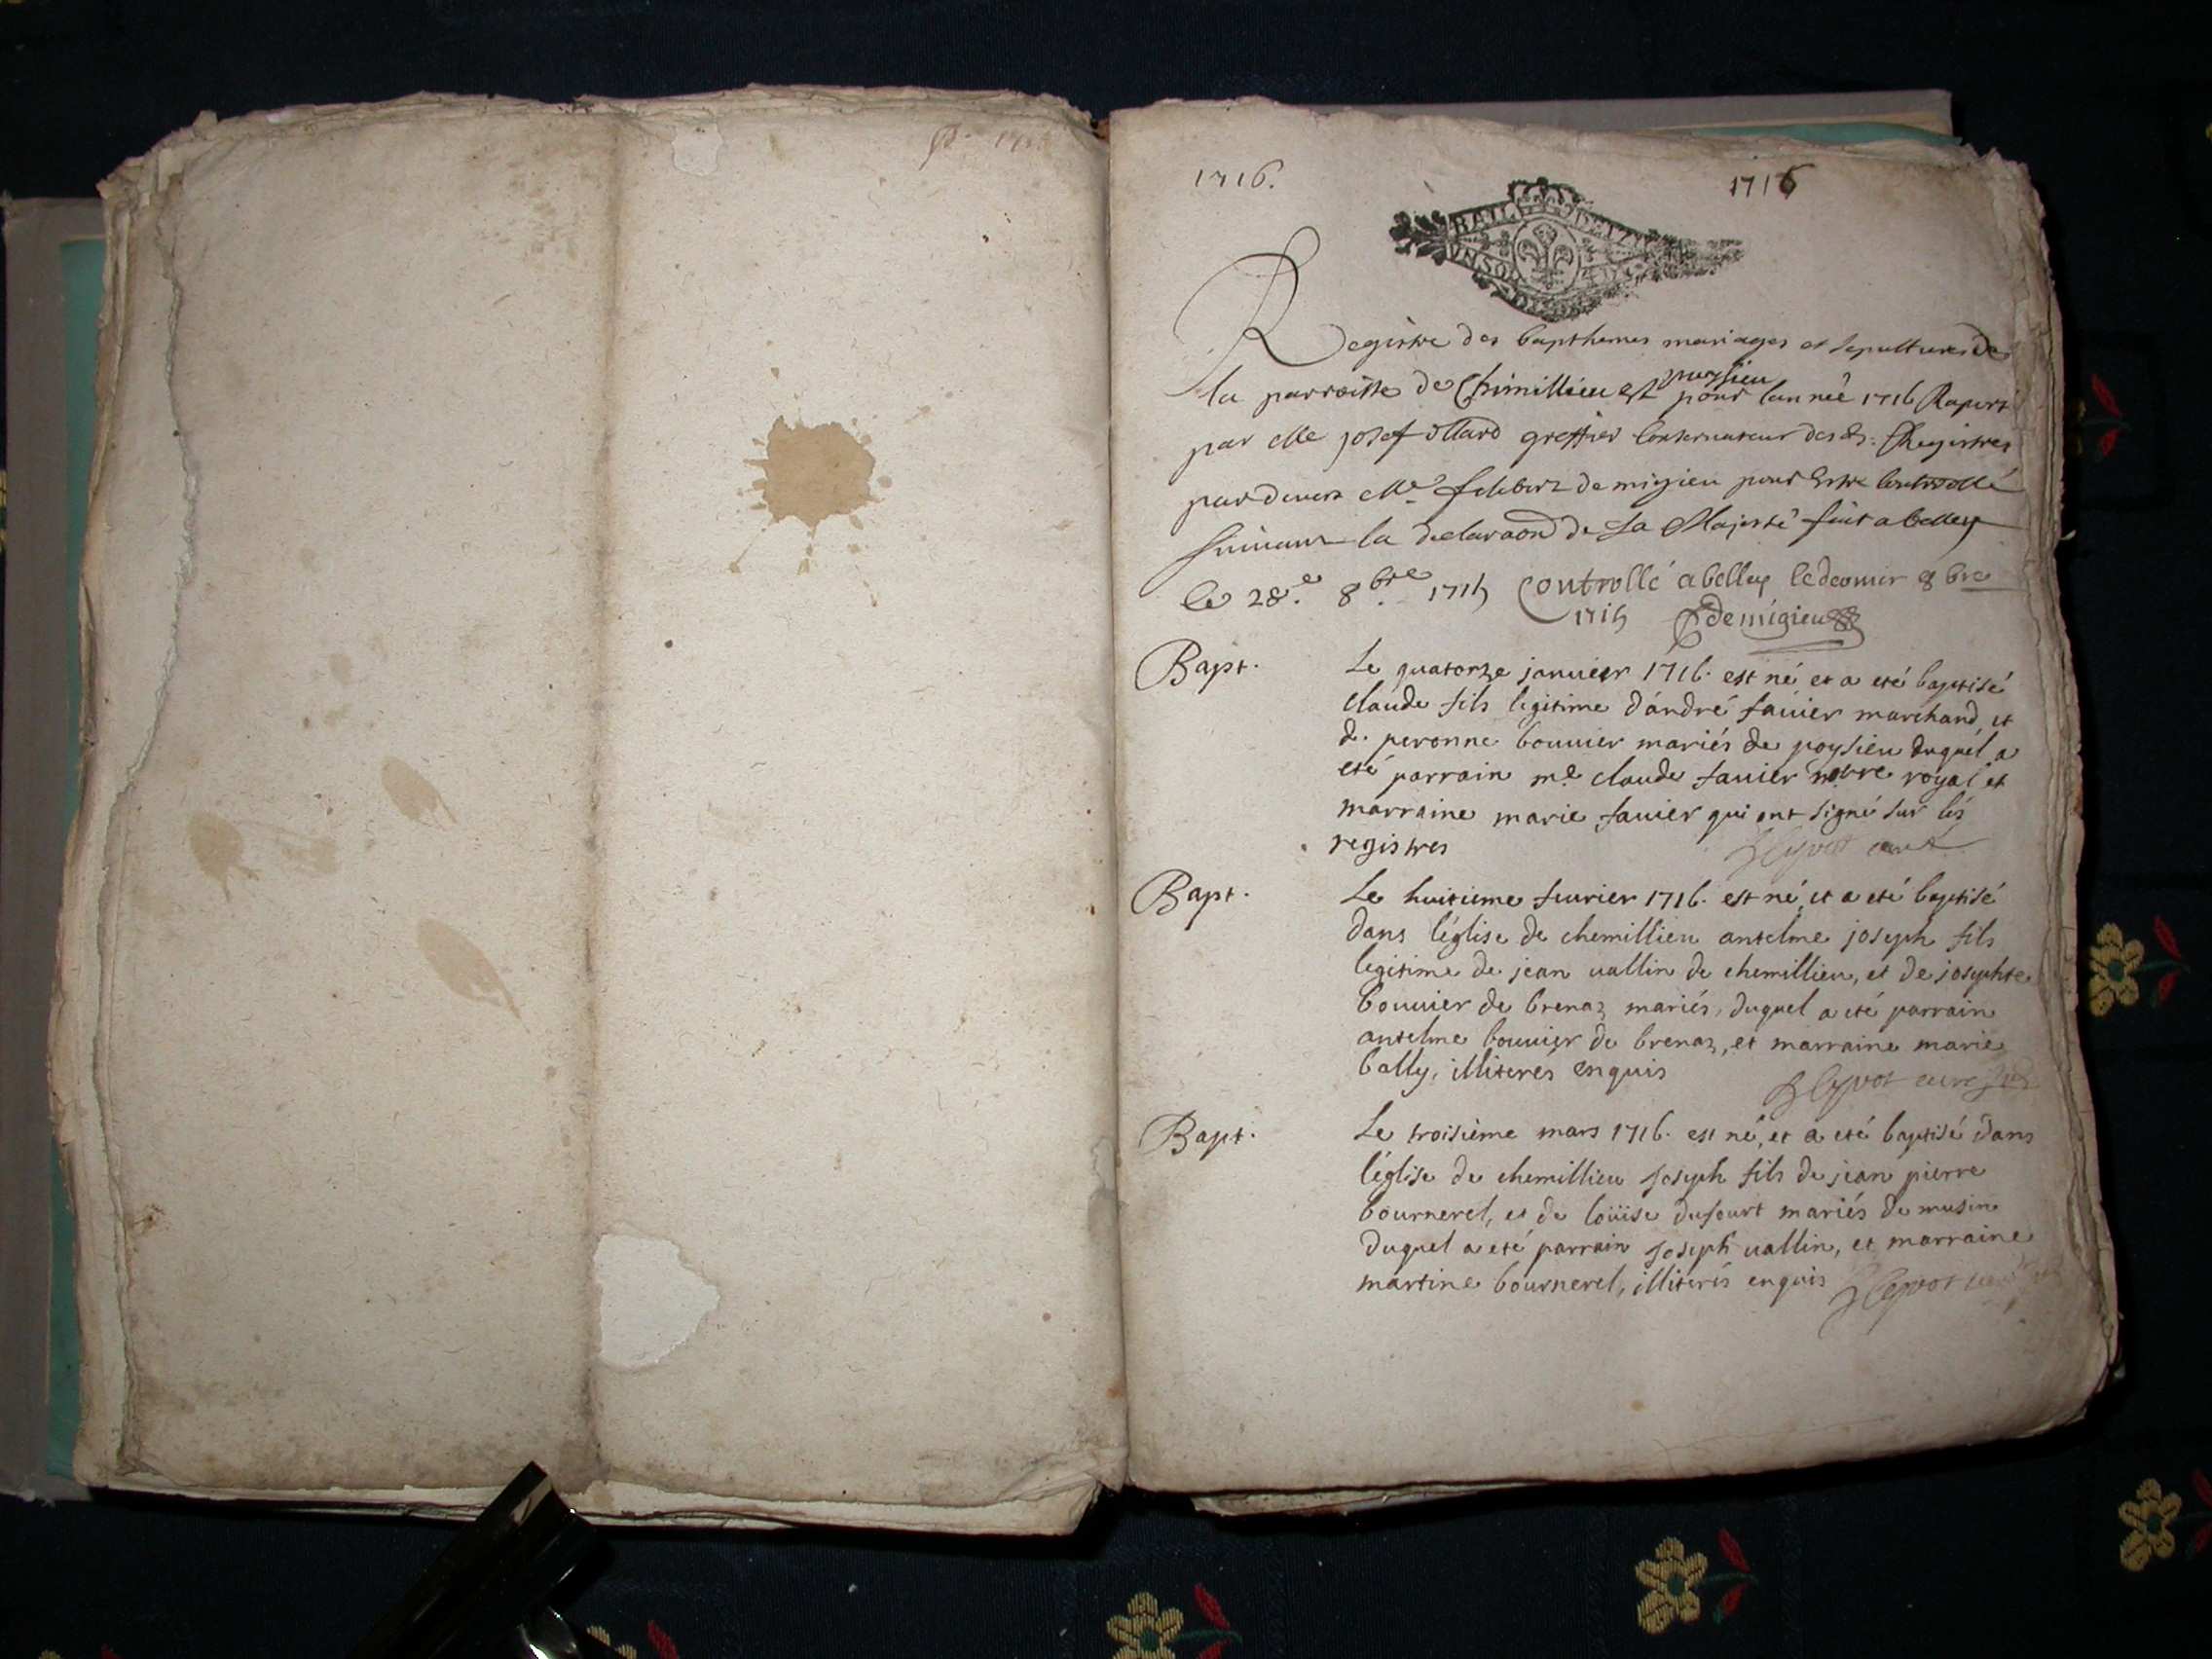 1716.
1716
Registre des bapthemes mariages et sepultures de
la parroisse de Chimillieu et poysieu pour lannéé 1716
par Me josef greffier conservateur des Registres
pardevant Me de migieu pour estre controollé
suivant la declaraon de Sa Majesté fait a belley
le 28.e 8.bre 1715 Controllé a belley le dernier 8bre
1715 demigieu
Bapt.
Le quatorze januier 1716. est né et a eté baptisé
claude fils legitime d'andré fauier marchand et
d. peronne bouuier mariés de poysieu duquel a
eté parrain me. claude fauier notre royal et
marraine marie fauier qui ont signé sur lés
registres
curé
Bapt.
Le huitieme feurier 1716. est né, et a eté baptisé
dans l'église de chemillieu antelme joseph fils
legitime de jean uallin de chemillieu, et de josephte
bouuier de brenaz mariés, duquel a eté parrain
antelme bouuier de brenaz, et marraine marie
bally, illiterés enquis
curé
Bapt.
Le troisième mars 1716. est né, et a eté baptisé dans
l'église de chemillieu joseph fils de jean pierre
bournerel, et de loüise dufourt mariés de musin
duquel a eté parrain joseph uallin, et marraine
martine bournerel, illiterés enquis